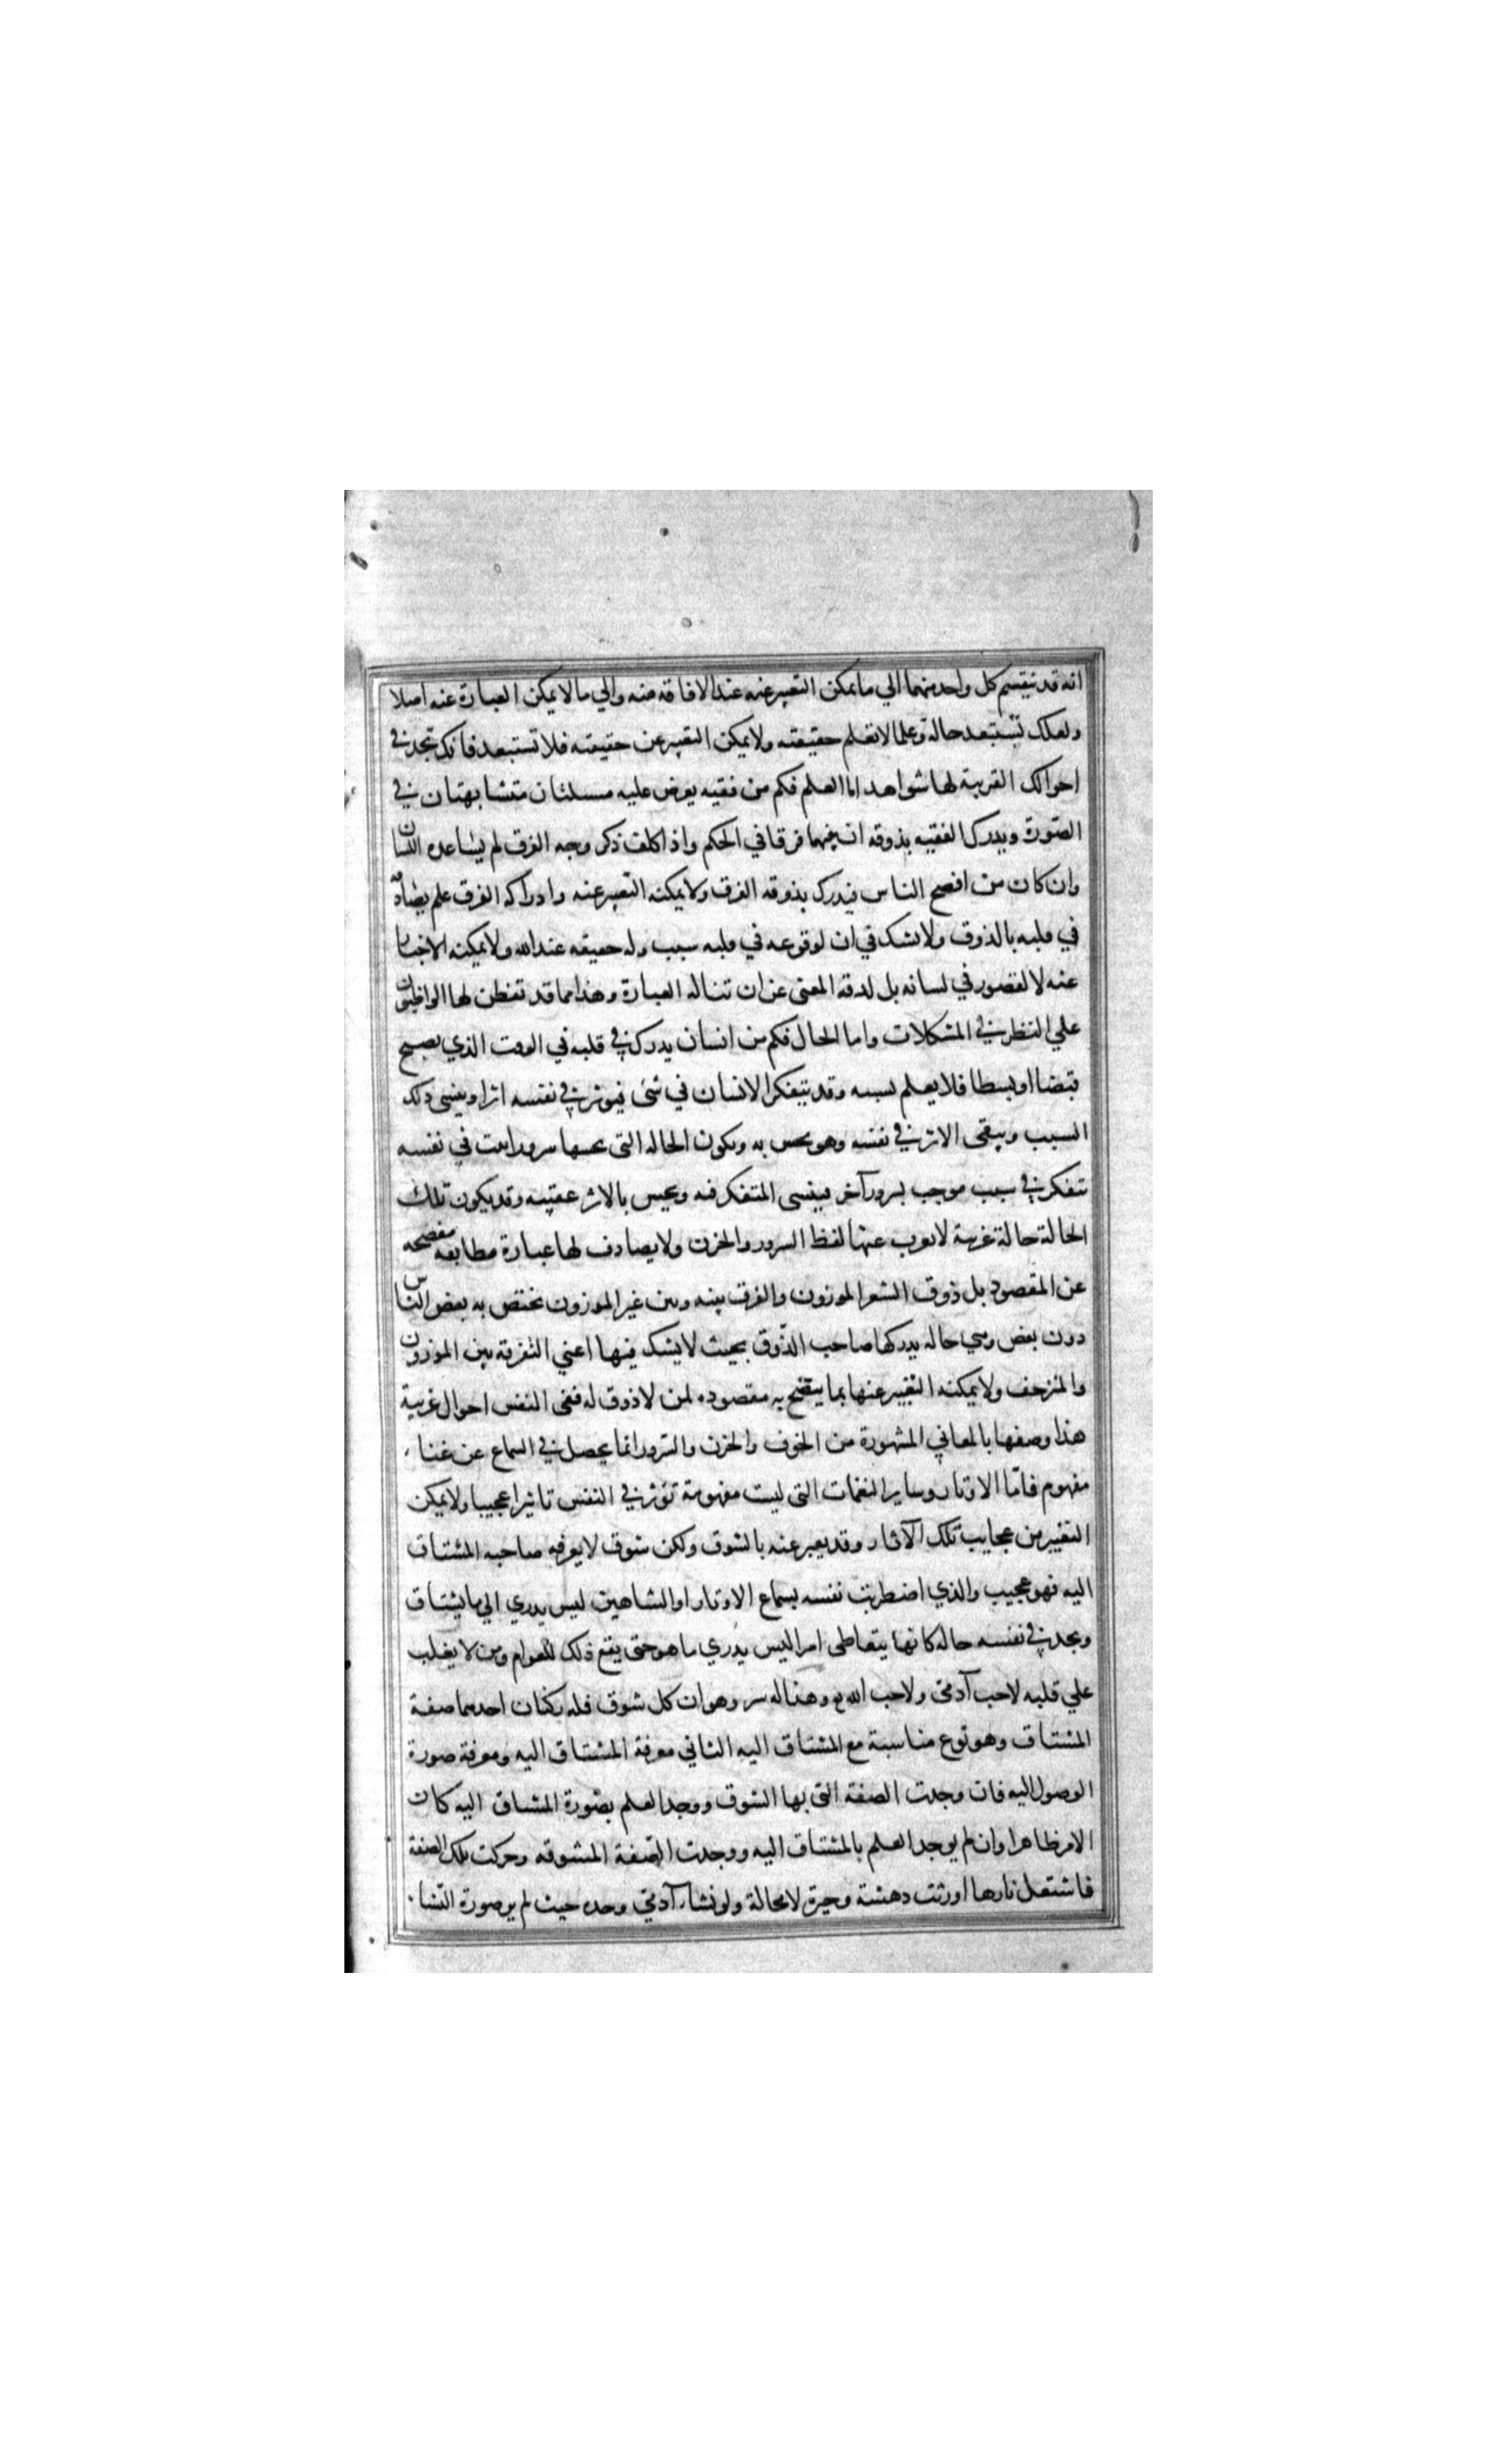 انه قد ينقسم كل واحد منهما الي ما يمكن التعبير عنه عند الافاقة منه والي ما لا يمكن العبارة عنه اصلا
ولعلك تستبعد حالة وعلما لا تعلم حقيقته ولا يمكن التعبير عن حقيقته فلا تستبعد فانك تجد في
احوالك القريبة لها شواهد اما العلم فكم من فقيه يعرض عليه مسئلتان متشابهتان في
الصورة ويدرك الفقيه بذوقه ان بينهما فرقا في الحكم واذا كلف ذكر وجه الفرق لم يساعده اللسان
وان كان من افصح الناس فيدرك بذوقه الفرق ولا يمكنه التعبير عنه وادراكه الفرق علم يصادفه
في قلبه بالذوق ولا يشك في ان لوقوعه في قلبه سبب وله حقيقه عند الله ولا يمكنه الاخبار
عنه لا لقصور في لسانه بل لدقة المعنى عن ان تناله العبارة وهذا مما قد تفطن لها المواظبون
علي النظر في المشكلات واما الحال فكم من انسان يدرك في قلبه في الوقت الذي يصبح
قبضا او بسطا فلا يعلم سببه وقد يتفكر الانسان في شئ فيوثر في نفسه اثرا وينسى ذلك
السبب ويبقى الاثر في نفسه وهو يحس به ويكون الحاله التى يحسها سرورا في نفسه
تتفكر في سبب موجب لسرور آخر فينسى المتفكر فيه ويحس بالاثر عقيبه وقد يكون تلك
الحالة حالة غريبة لا يعرب عنها لفظ السرور والحزن ولا يصادف لها عبارة مطابقه مفصحه
عن المقصود بل ذوق الشعر الموزون والفرق بينه وبين غير الموزون يختص به بعض الناس
دون بعض وهي حاله يدركها صاحب الذّوق بحيث لا يشك فيها اعني التفرقة بين الموزون
والمنزحف ولا يمكنه التعبير عنها بما يتضح به مقصوده لمن لا ذوق له ففى النفس احوال غريبة
هذا وصفها بالمعاني المشهورة من الخوف والحزن والسرور انما يحصل في السماع عن غناء
مفهوم فامّا الاوتار وساير النغمات التى ليست مفهومة تؤثر في النفس تاثيرا عجيبا ولا يمكن
التعبير عن عجايب تلك الآثار وقد يعبر عنه بالشوق ولكن شوق لا يعرف صاحبه المشتاق
اليه فهو عجيب والذي اضطربت نفسه بسماع الاوتار او الشاهين ليس يدري الي ما يشتاق
ويجد في نفسه حالة كانها يتقاضى امرا ليس يدري ما هو حتى يقع ذلك للعوام ومن لا يغلب
علي قلبه لا حب آدمى ولا حب الله وهذا له سر وهو ان كل شوق فله ركنان احدهما صفة
المشتاق وهو نوع مناسبة مع المشتاق اليه الثاني معرفة المشتاق اليه ومعرفة صورة
الوصول اليه فان وجدت الصفة التى بها الشوق ووجد العلم بصورة المشتاق اليه كان
الامر ظاهرا وان لم يوجد العلم بالمشتاق اليه ووجدت الصّفة المشوقه وحركت تلك الصفة
فاشتعل نارها اورثت دهشة وحيرة لا محالة ولو نشاء آدمى وحده حيث لم ير صورة النساء